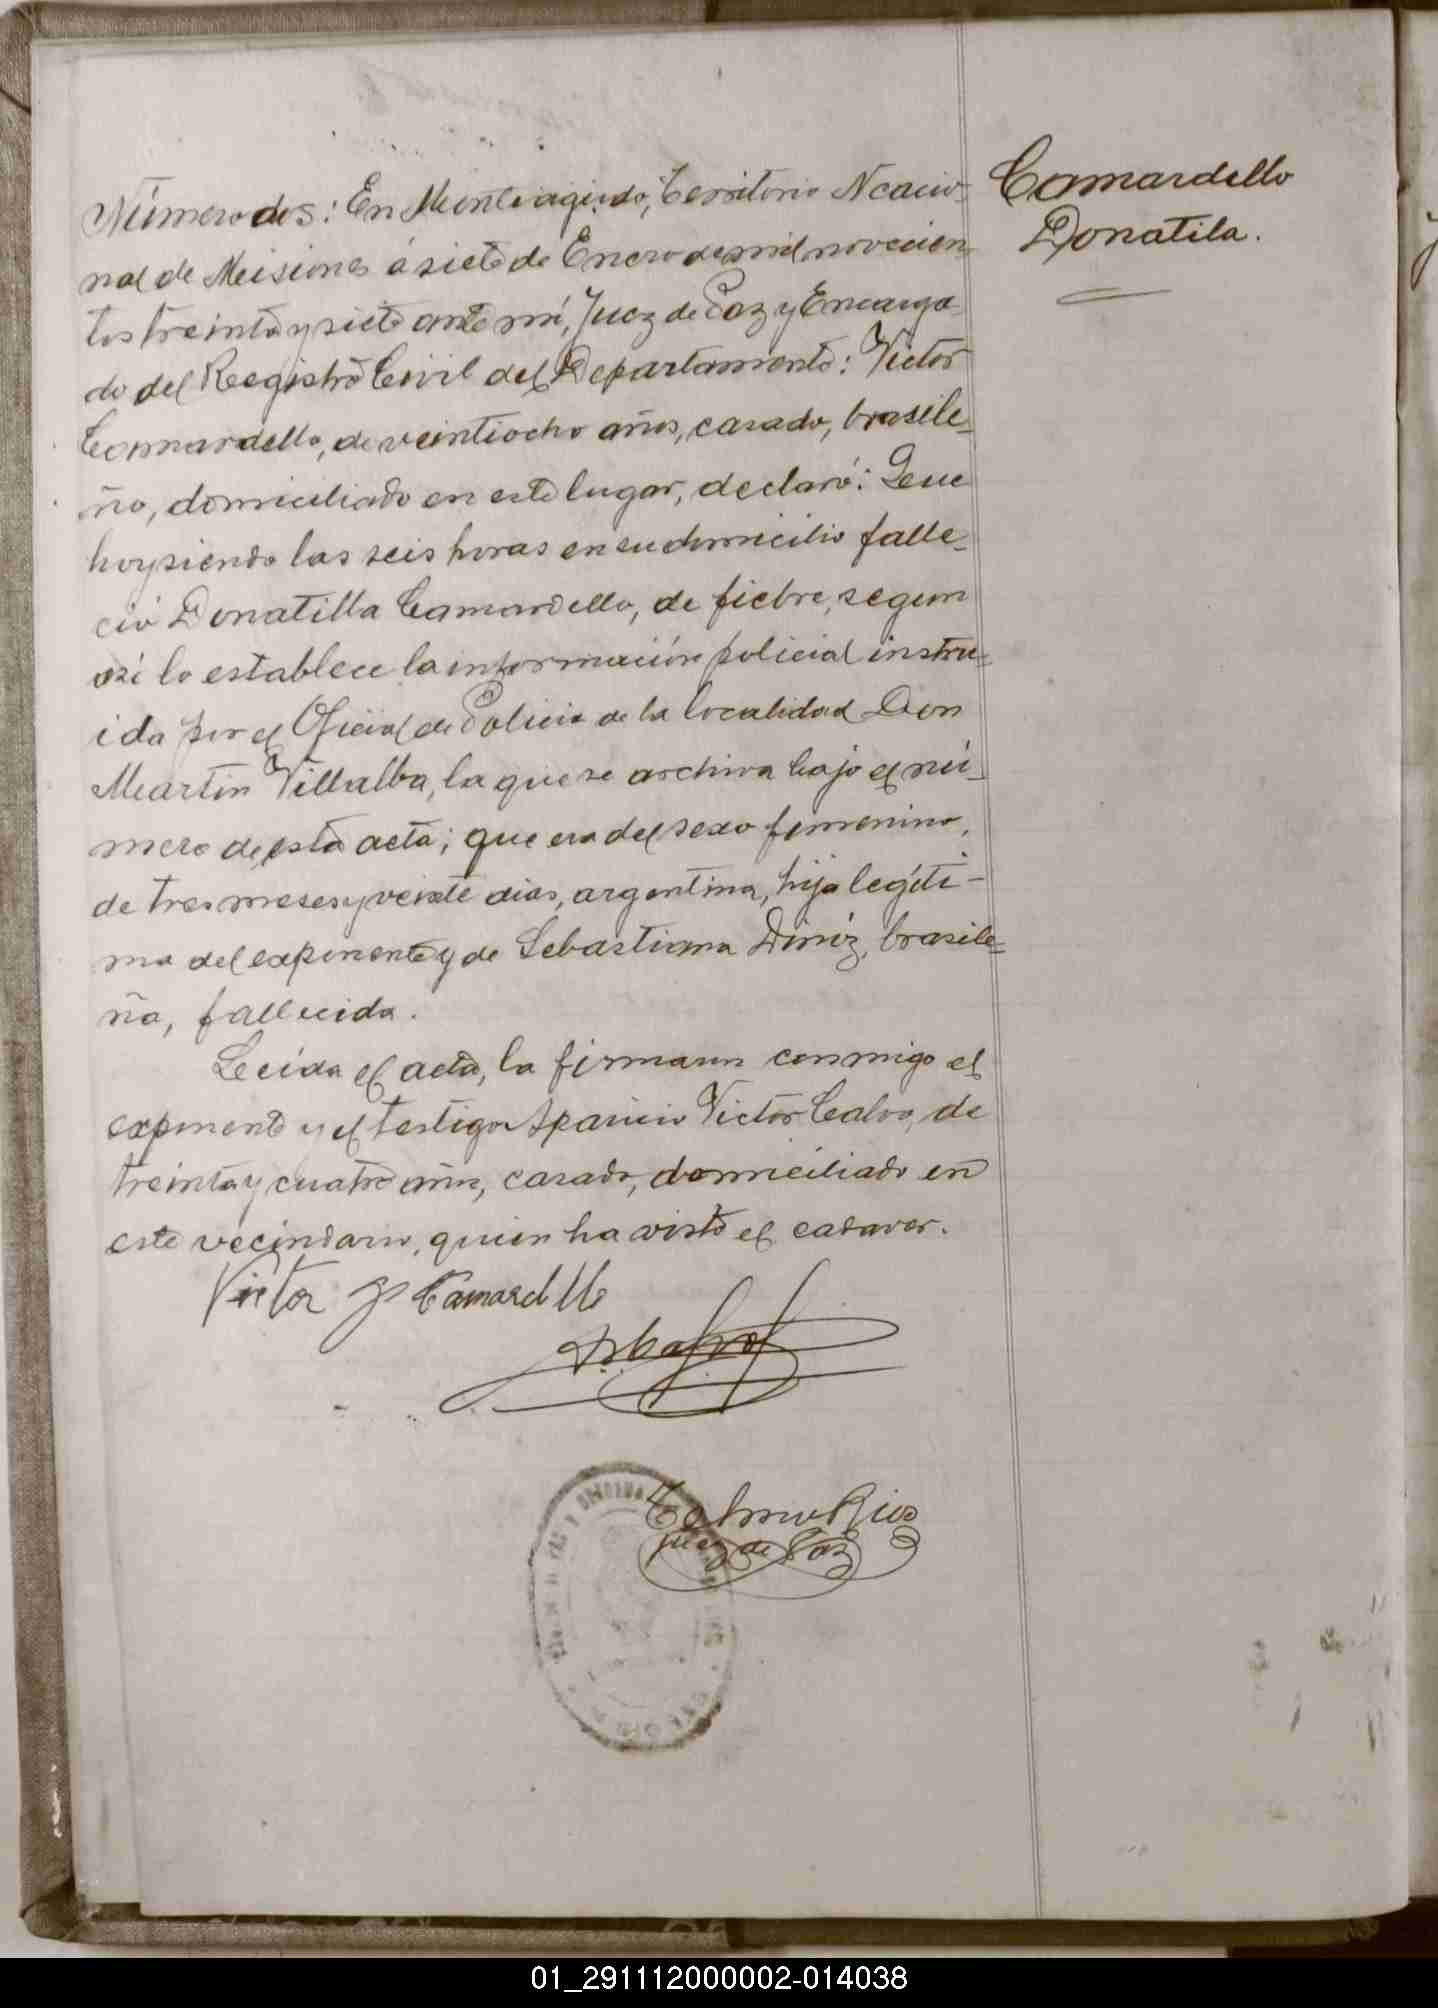 Camardello
Donatila.
Número dos: En Monteagudo, Territorio Nacio-
nal de Misiones á siete de Enero de mil novecien-
tos treinta y siete ante mí, Juez de Paz y Encarga-
do del Registro Civil del Departamento: Victor
Camardello, de veintiocho años, casado, brasile-
ño, domiciliado en este lugar, declaró: Que
hoy siendo las seis horas en su domicilio falle-
ció Donatilla Camardello, de fiebre, segun
asi lo establece la información policial instru-
ida por el Oficial de Policia de la localidad Don
Martin Villalba, la que se archiva bajo el nú-
mero de esta acta; que era del sexo femenino,
de tres meses y veinte dias, argentina, hija legíti-
ma del exponente y de Sebastiana Diniz, brasile-
ña, fallecida.
Leida el acta, la firmaron conmigo el
exponente y el testigo Aparicio Victor Calvo, de
treinta y cuatro años, casado, domiciliado en
este vecindario, quien ha visto el cadaver.
Victor Camardello
Calvo
Rios
Juez de Paz
01_291112000002-014038